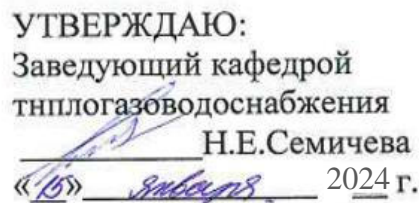 УТВЕРЖДАЮ:
Заведующий кафедрой
тнплогазоводоснабжения
Н.Е.Семичева
«15» января 2024 г.